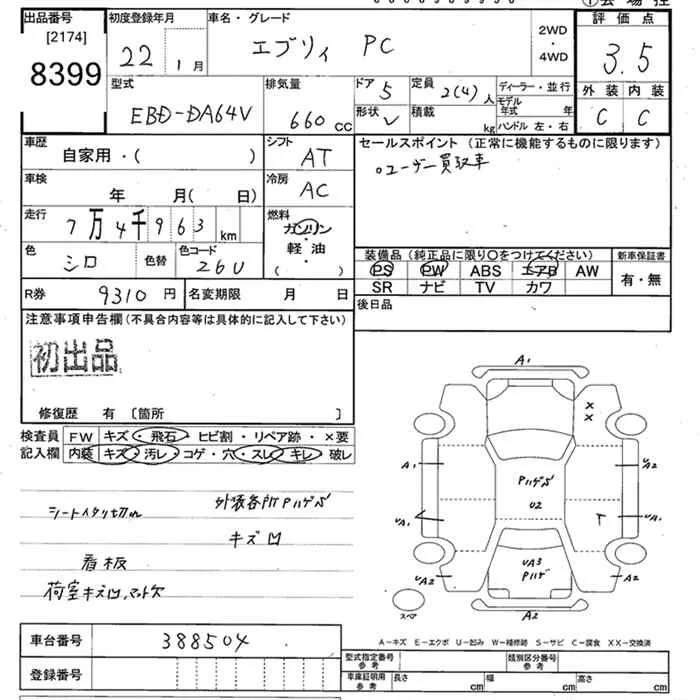 出品番号
[2174]
8399
初度登録年月
22年 1月
車名・グレード
エブリィ PC
2WD
・
4WD
評価点
3.5
型式
EBD-DA64V
排気量
660 cc
ドア
5
形状
V
定員
2(4)人
積載
kg
ディーラー・並行
モデル年式 年
ハンドル 左・右
外装 内装
C C
車歴
自家用・( )
シフト
AT
セールスポイント (正常に機能するものに限ります)
○ユーザー買取車
車検
年 月( 日)
冷房
AC
走行
7万4千963 km
燃料
ガソリン
・
軽油
・
( )
色
シロ
色替
色コード
26U
装備品 (純正品に限り○をつけてください)
PS PW ABS エアB AW
SR ナビ TV カワ
新車保証書
有・無
R券
9310円
名変期限 月 日
後日品
注意事項申告欄(不具合内容等は具体的に記入して下さい)
初出品
修復歴 有 〔箇所 〕
検査員
記入欄
FW キズ・飛石・ヒビ割・リペア跡・×要
内装 キズ・汚レ・コゲ・穴・スレ・キレ・破レ
外装各所Pハゲ
シートスタリ切れ
キズ凹
看板
荷室キズ凹、マット欠
A1
×
×
A1
A2
Pハゲ
U2
UA1
T
UA1
UA3
Pハゲ
UA2
A2
スペ
A2
A−キズ E−エクボ U−凹み W−補修跡 S−サビ C−腐食 XX−交換済
車台番号
388504
登録番号
型式指定番号
参考
類別区分番号
参考
車庫証明用
参考
長さ cm 幅 cm 高さ cm